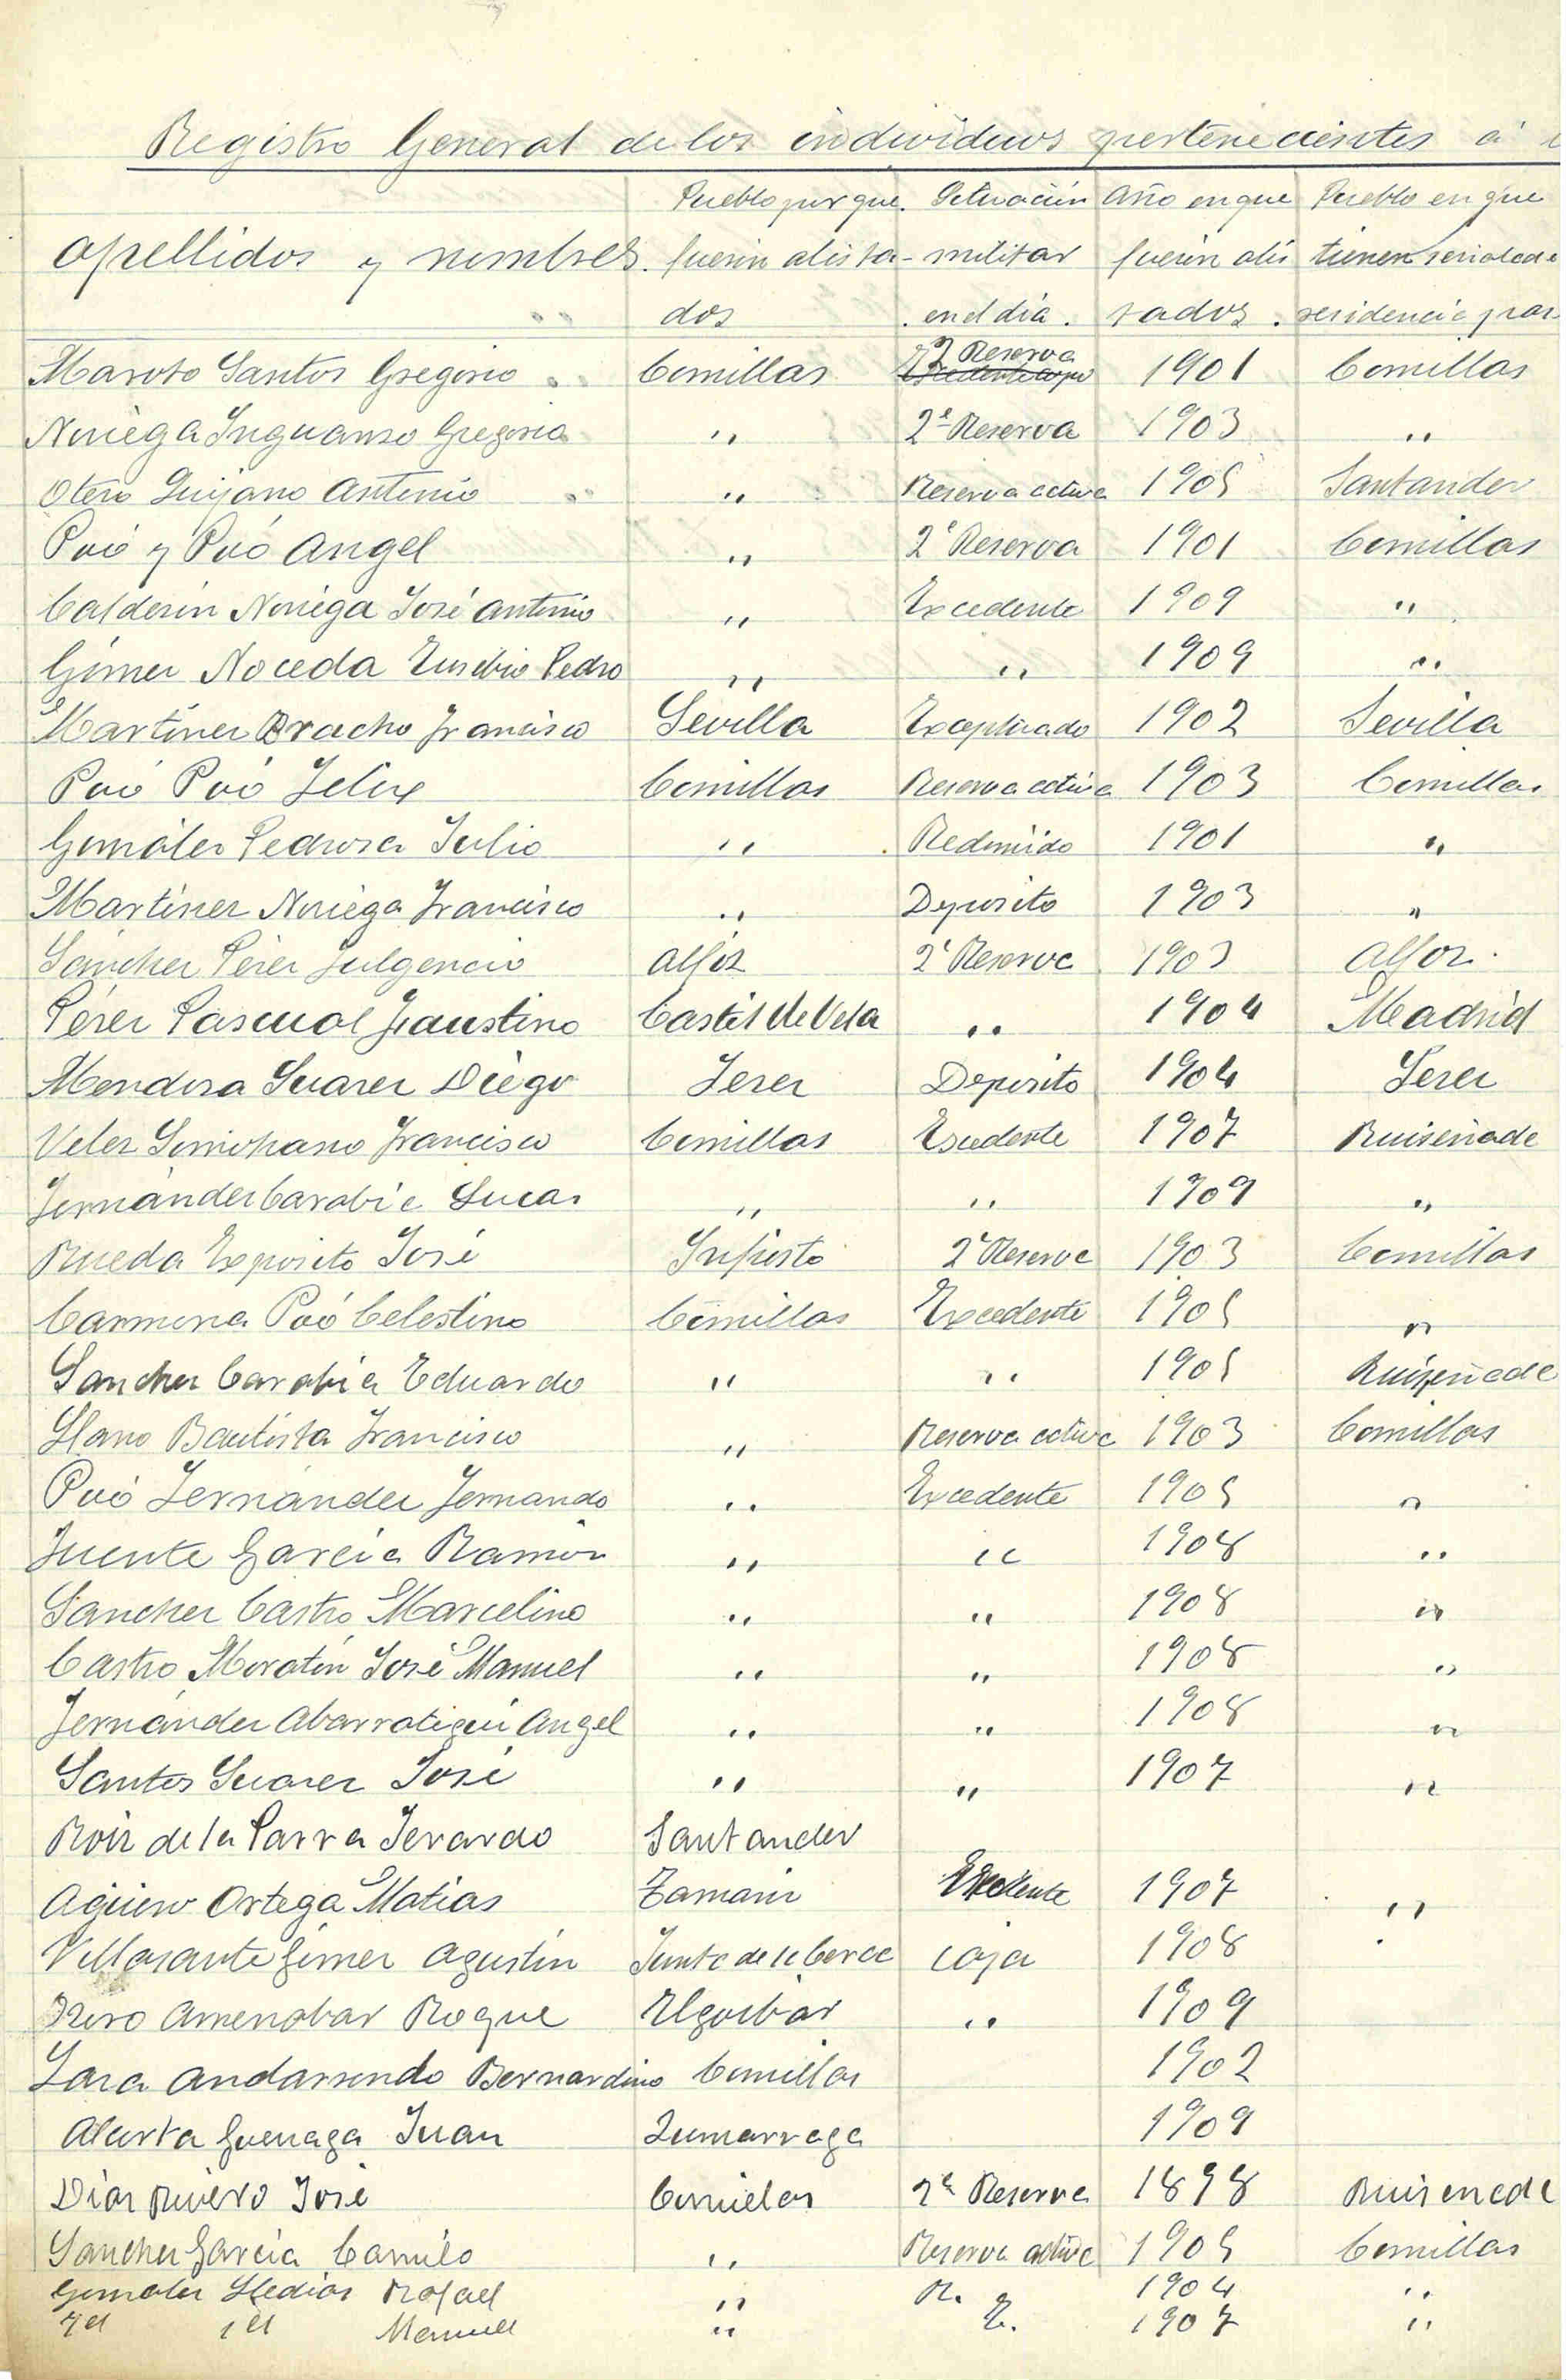 Registro General de los individuos pertenecientes á
apellidos y nombres. Pueblo por que fuerón alistados Situación militar en el dia. Año en que fuerón alistados. Pueblo en que tienen señalada residencia
Maroto Santos Gregorio Comillas 2ª Reserva 1901 Comillas
Noriega Inguanzo Gregorio " 2ª Reserva 1903 "
Otero Quijano Antonio " Reserva activa 1905 Santander
Poó y Poó Angel " 2ª Reserva 1901 Comillas
Calderón Noriega José Antonio " Excedente 1909 "
Gómez Noceda Eusebio Pedro " " 1909 "
Martínez Bracho Francisco Sevilla Exceptuado 1902 Sevilla
Poó Poó Felix Comillas Reserva activa 1903 Comillas
González Pedrosa Julio " Redimido 1901 "
Martinez Noriega Francisco " Deposito 1903 "
Sánchez Pérez Fulgencio Alfoz 2ª Reserva 1903 Alfoz.
Pérez Pascual Faustino Castil de Vela " 1904 Madrid
Mendoza Suarez Diego Jerez Deposito 1904 Jerez
Velez Francisco Comillas Excedente 1907 Ruiseñada
Fernández Carabia Lucas " " 1909 "
Rueda Exposito José Infiesto 2ª Reserva 1903 Comillas
Carmona Poó Celestino Comillas Excedente 1905 "
Sanchez Carabia Eduardo " " 1905 Ruiseñada
Llano Bautista Francisco " Reserva activa 1903 Comillas
Poó Fernández Fernando " Excedente 1905 "
Fuente García Ramón " " 1908 "
Sanchez Castro Marcelino " " 1908 "
Castro Moratón José Manuel " " 1908 "
Fernández Angel " " 1908 "
Santos Suarez José " " 1907 "
Roiz de la Parra Jerardo Santander
Agüero Ortega Matias Excedente 1907 "
Villasante Gómez Agustín Junta de la Cerca Caja 1908
Amenabar Roque Elgoibar " 1909
Lara Bernardino Comillas 1902
Alusta Guenaga Juan Zumarraga 1909
Díaz Rivero José Comillas 2ª Reserva 1898 Ruiseñada
Sanchez García Camilo " Reserva activa 1905 Comillas
González Lledías Rafael " R. 1904 "
Id Id Manuel " E. 1907 "